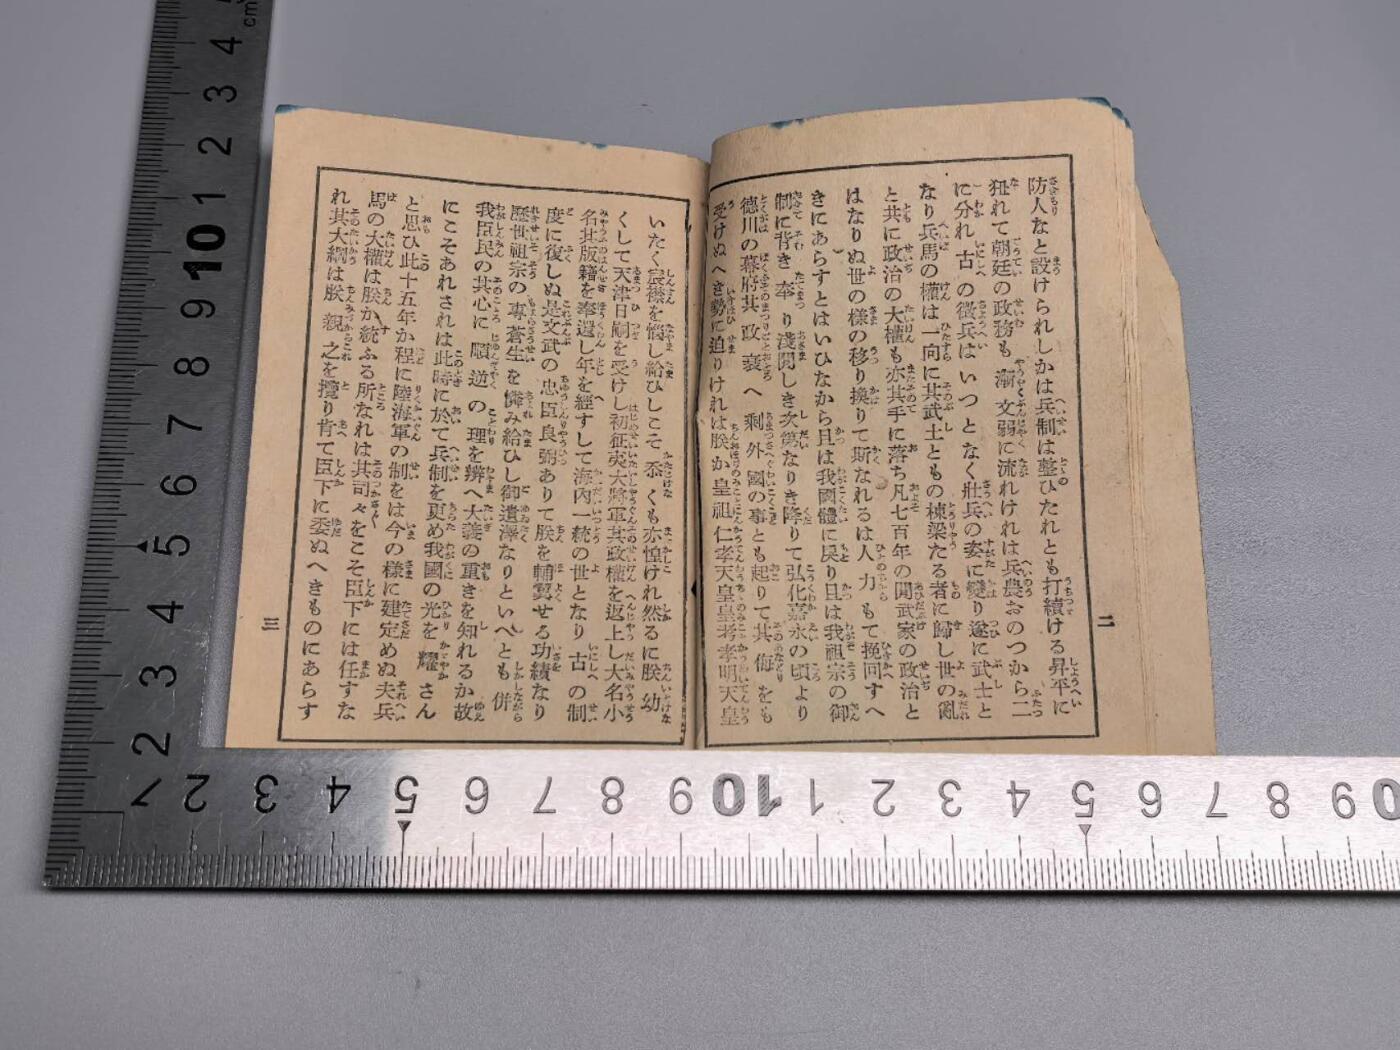 防人なと設けられしかは兵制は整ひたれとも打續ける昇平に
狃れて朝廷の政務も漸文弱に流れけれは兵農おのつから二
に分れ古の徴兵はいつとなく壯兵の姿に變り遂に武士と
なり兵馬の權は一向に其武士ともの棟梁たる者に歸し世の亂
と共に政治の大權も亦其手に落ち凡七百年の間武家の政治と
はなりぬ世の樣の移り換りて斯なれるは人力もて挽回すへ
きにあらすとはいひなから且は我國體に戻り且は我祖宗の御
制に背き奉り淺間しき次第なりき降りて弘化嘉永の頃より
德川の幕府其政衰へ剩外國の事とも起りて其侮をも
受けぬへき勢に迫りけれは朕か皇祖仁孝天皇皇考孝明天皇
二
いたく宸襟を惱し給ひしこそ忝くも亦惶けれ然るに朕幼
くして天津日嗣を受けし初征夷大將軍其政權を返上し大名小
名其版籍を奉還し年を經すして海內一統の世となり古の制
度に復しぬ是文武の忠臣良弼ありて朕を輔翼せる功績なり
歷世祖宗の專蒼生を憐み給ひし御遺澤なりといへとも併
我臣民の其心に順逆の理を辨へ大義の重きを知れるか故
にこそあれされは此時に於て兵制を更め我國の光を耀さん
と思ひ此十五年か程に陸海軍の制をは今の樣に建定めぬ夫兵
馬の大權は朕か統ふる所なれは其司々をこそ臣下には任すな
れ其大綱は朕親之を攬り肯て臣下に委ぬへきものにあらす
三
cm
4
3
2
1
10
9
8
7
6
5
4
3
2
1 2 3 4 5 6 7 8 9 10 1 2 3 4 5 6 7 8 9 0